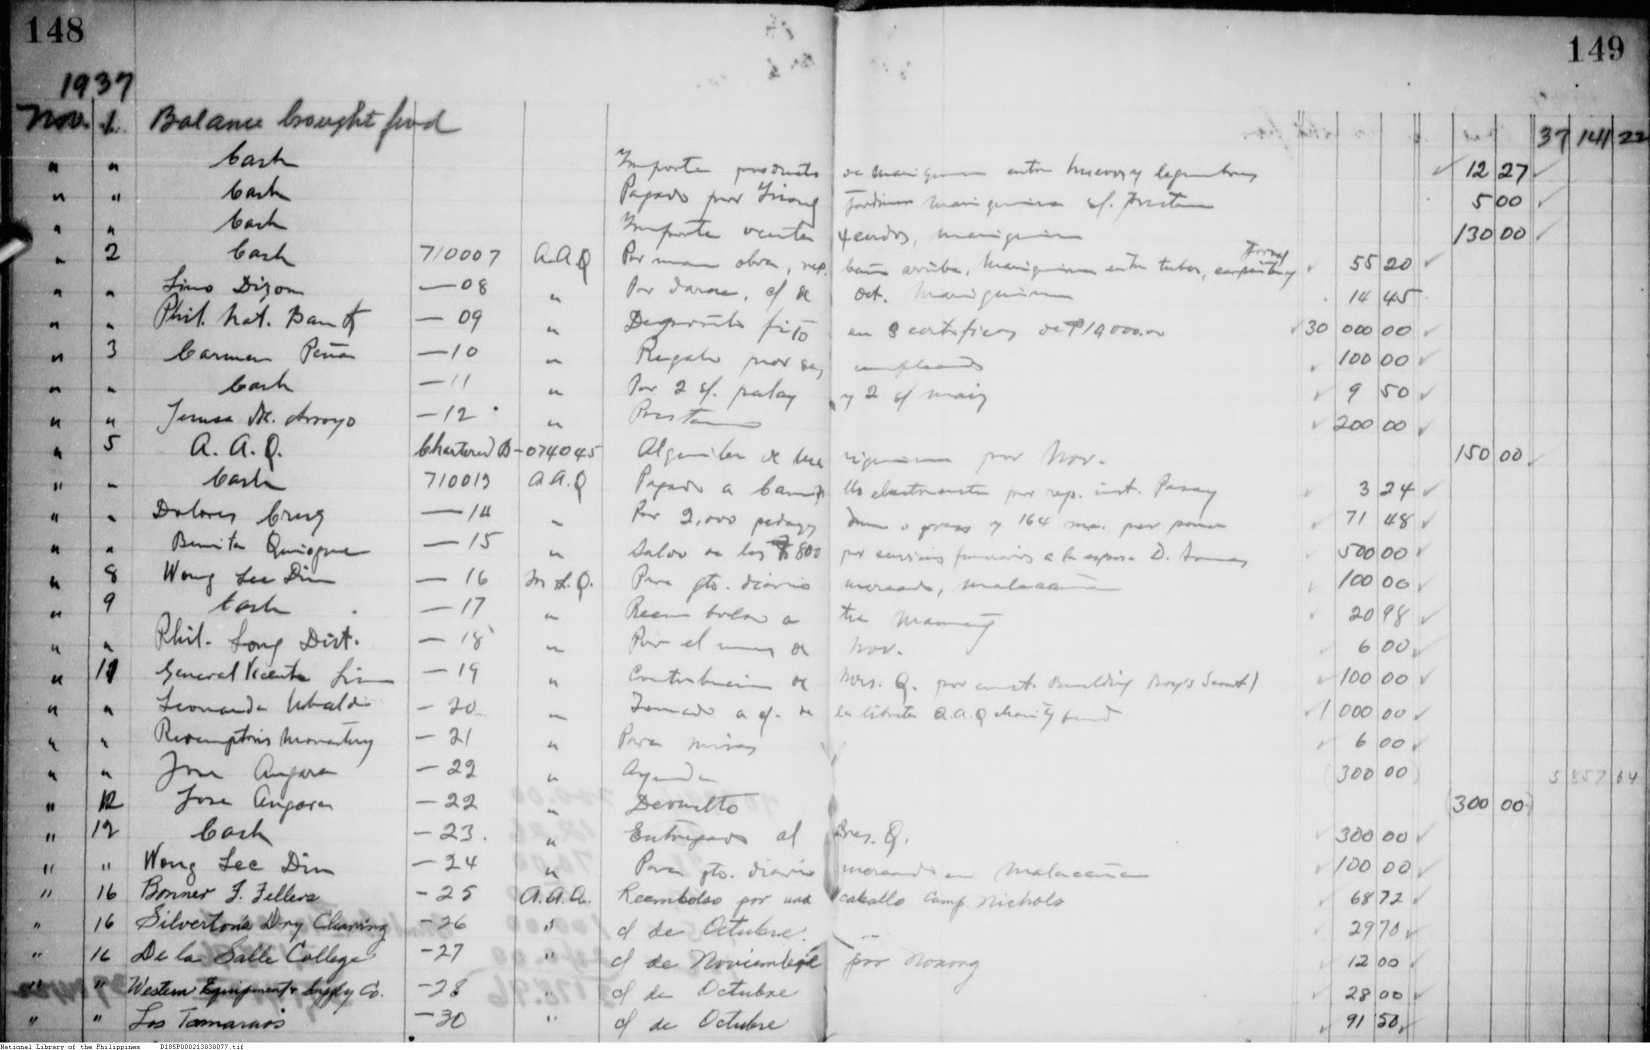 148 149
1937
Nov. 1. Balance brought fwd 37 141 22
" " Cash Importe producto de Mariquina entre huevos y legumbres 12 27
" " Cash Pagado por Jardinero Mariquina 5 00
" " Cash Importe venta 4 cerdos, Mariquina 130 00
" 2 Cash 710007 A.A.Q Por mano obra, rep. Mariquina entre tubos, carpintero 55 20
" " Lino Dizon — 08 " Por c/ de Oct. Mariquina 14 45
" " Phil. Nat. Bank — 09 " Deposito fijo en 3 certificos de ₱10000.00 30 000 00
" 3 Carmen Peña — 10 " Regalo por 100 00
" " Cash — 11 " Por 2 s/. palay y 2 s/ maiz 9 50
" " Teresa de Arroyo — 12 " Prestamo 200 00
" 5 A. A. Q. Chartered B - 074045 Alquiler de Mariquina por Nov. 150 00
" " Cash 710013 A A. Q Pagado a por rep. inst. Pasay 3 24
" " Dolores Cruz — 14 " Por 2,000 pedazos y 164 71 48
" " Benita Quiogue — 15 " Saldo de los ₱800 por servicios funerarios a la esposa D. 500 00
" 8 Wong Lee Din — 16 M.L.Q. Para gto. diario mercado, Malacañan 100 00
" 9 Cash — 17 " Reembolso a 20 98
" " Phil. Long Dist. — 18 " Por el mes de Nov. 6 00
" 11 General Vicente Lim — 19 " Contribucion de Mrs. Q. por const. Building Boy's Scout) 100 00
" " Leonarda Ubaldo — 20 " Tomado a c/. de la libreta A.A.Q charity fund 1 000 00
" " Redemptoris Monastery — 21 " Para misas 6 00
" " Jose Angara — 22 " Ayuda (300 00) 5 857 64
" 12 Jose Angara — 22 " Devuelto (300 00)
" 12 Cash — 23. " Entregado al Pres. Q. 300 00
" " Wong Lee Din — 24 " Para gto. diario mercado en Malacañan 100 00
" 16 Bonner F. Fellers — 25 A.A.Q. Reembolso por una caballo Camp Nichols 68 72
" 16 Silverton's Dry Cleaning — 26 " c/ de Octubre. 29 70
" 16 De la Salle College — 27 " c/ de Noviembre por Nonong 12 00
" " Western Equipment & Supply Co. — 28 " c/ de Octubre 28 00
" " Los Tamaraos — 30 " c/ de Octubre 91 50
National Library of the Philippines D185P000213838077.tif